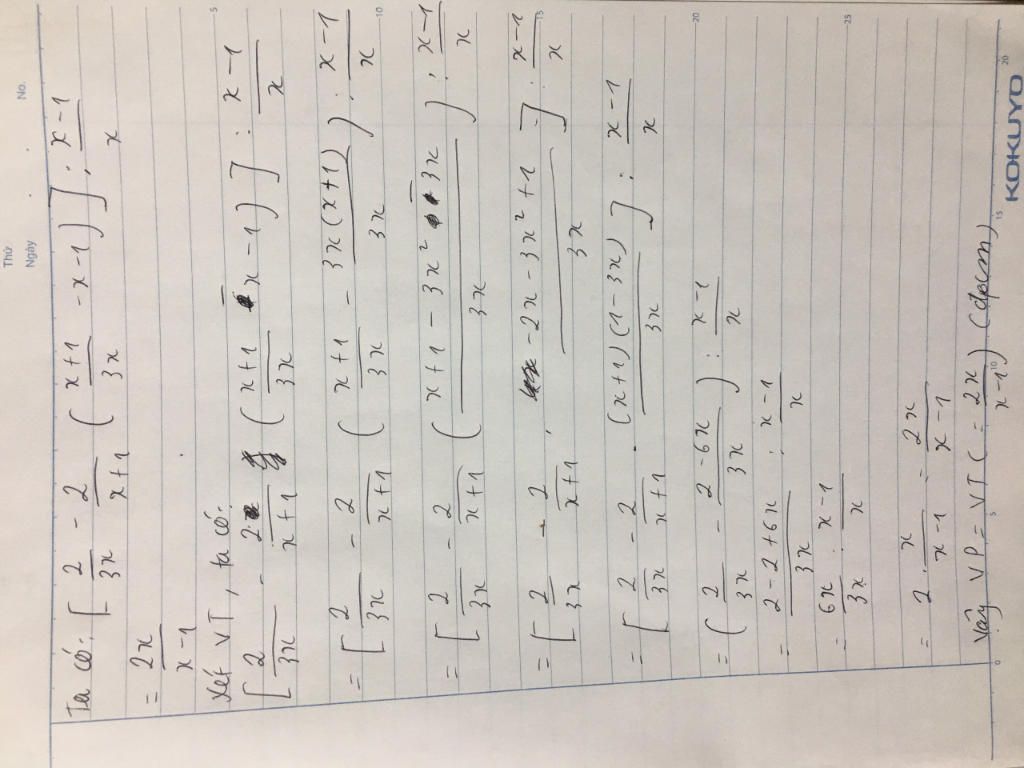 Thứ
Ngày
No.
Ta có: [2/3x - 2/x+1 (x+1/3x - x - 1)] : x-1/x
= 2x/x-1
Xét VT, ta có:
[2/3x - 2/x+1 (x+1/3x - x - 1)] : x-1/x
= [2/3x - 2/x+1 (x+1/3x - 3x(x+1)/3x) : x-1/x
= [2/3x - 2/x+1 (x+1-3x² - 3x/3x) : x-1/x
= [2/3x - 2/x+1 . -2x-3x²+1/3x] : x-1/x
= [2/3x - 2/x+1 . (x+1)(1-3x)/3x] : x-1/x
= (2/3x - 2-6x/3x) : x-1/x
= 2-2+6x/3x : x-1/x
= 6x/3x : x-1/x
= 2 . x/x-1 = 2x/x-1
Vậy VP = VT (= 2x/x-1) (đpcm)
0 5 10 15 20
5 10 15 20 25
KOKUYO